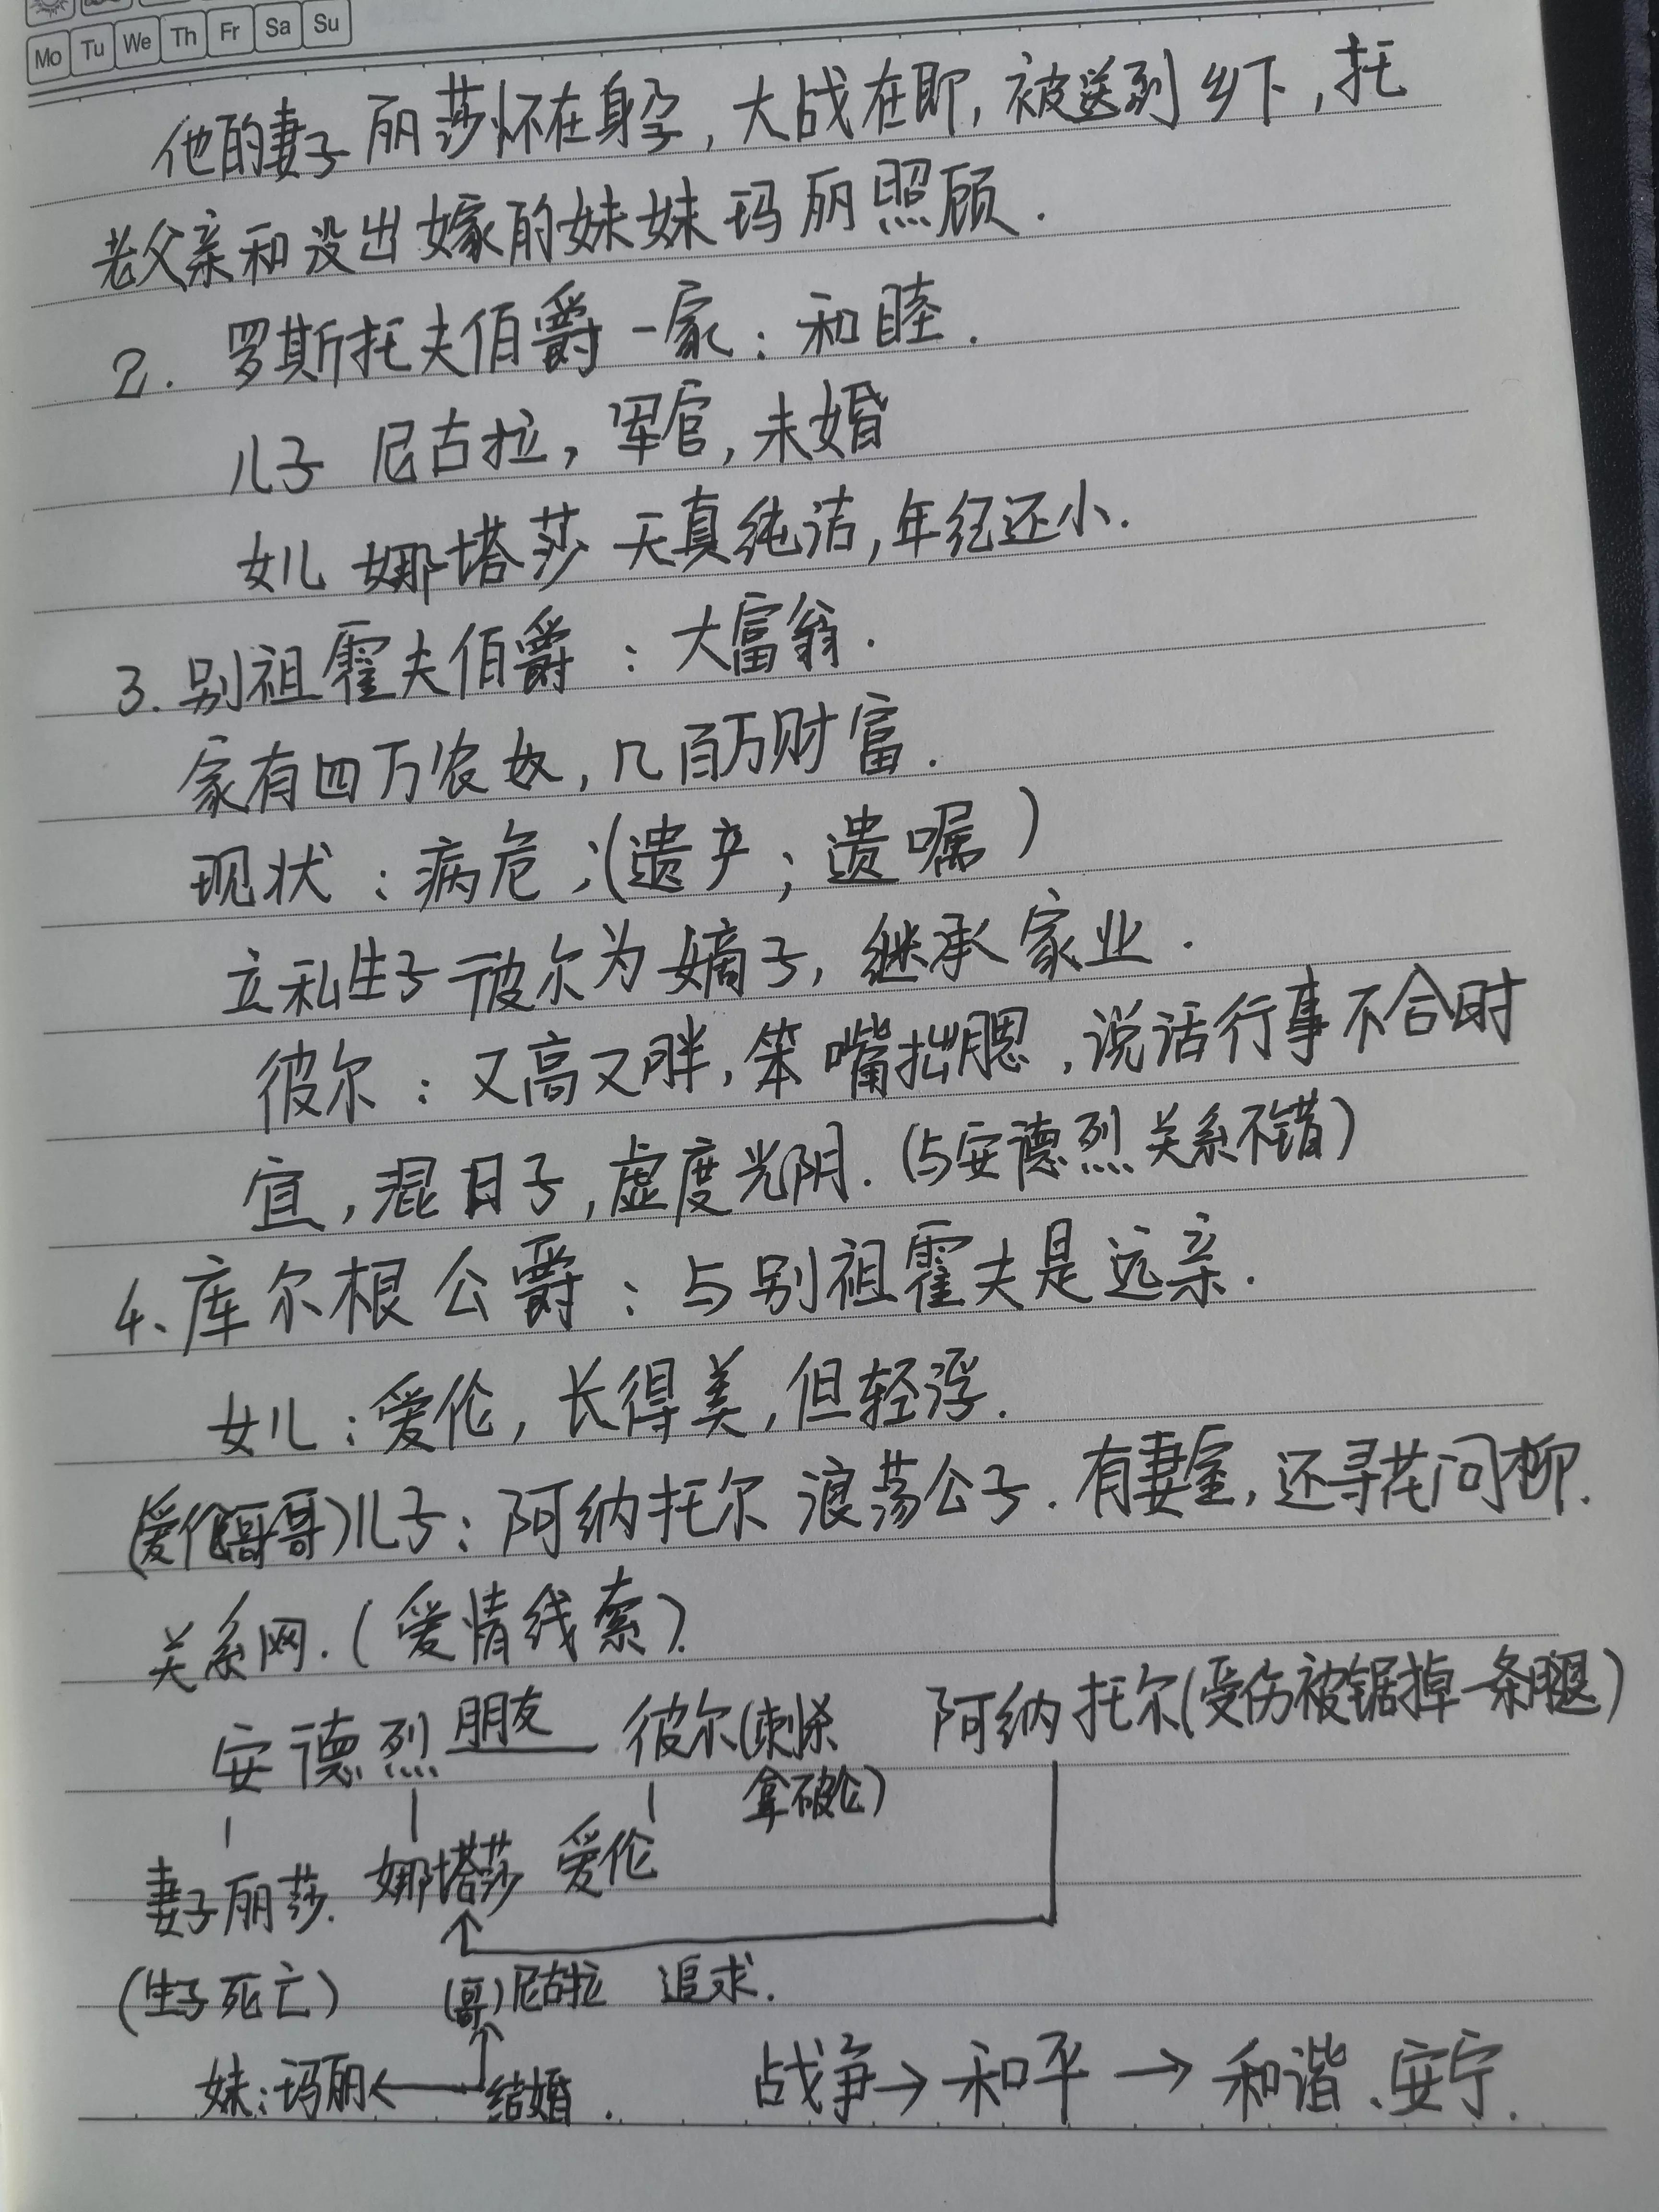 Mo Tu We Th Fr Sa Su
他的妻子丽莎怀在身孕，大战在即，被送到乡下，托
老父亲和没出嫁的妹妹玛丽照顾.
2. 罗斯托夫伯爵一家：和睦.
儿子 尼古拉，军官，未婚
女儿 娜塔莎 天真纯洁，年纪还小.
3. 别祖霍夫伯爵：大富翁.
家有四万农奴，几百万财富.
现状：病危；(遗产；遗嘱)
立私生子彼尔为嫡子，继承家业.
彼尔：又高又胖，笨嘴拙腮，说话行事不合时
宜，混日子，虚度光阴.(与安德烈关系不错)
4、库尔根公爵：与别祖霍夫是远亲.
女儿：爱伦，长得美，但轻浮.
(爱伦哥哥)儿子：阿纳托尔 浪荡公子.有妻室，还寻花问柳.
关系网.(爱情线索).
安德烈 朋友 彼尔(刺杀 阿纳托尔(受伤被锯掉一条腿)
拿破伦)
妻子丽莎. 娜塔莎 爱伦
(生子死亡) (哥)尼古拉 追求.
妹：玛丽 结婚. 战争→和平→和谐、安宁.